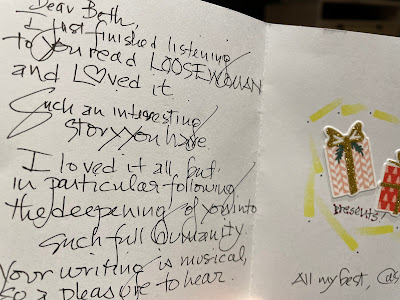 Dear Beth,
I just finished listening
to you read LOOSE WOMAN
and L♡ved it.
Such an interesting
story you have
I loved it all but
in particular following
the deepening of you into
such full humanity.
Your writing is musical,
so a pleasure to hear.
presents!
All my best,